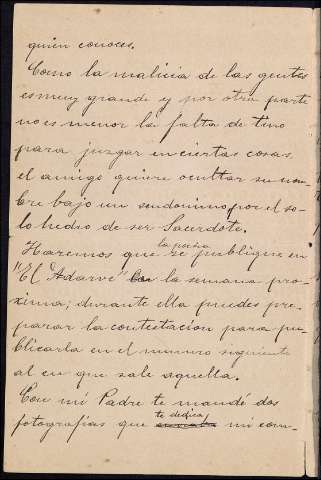 quien conoces.
Como la malicia de las gentes
es muy grande y por otra parte
no es menor la falta de tino
para juzgar en ciertas cosas,
el amigo quiere ocultar su nom-
bre bajo un seudonimo por el so-
lo hecho de ser Sacerdote.
la poesia
Haremos que se publique en
"El Adarve" la semana pro-
xima; durante ella puedes pre-
parar la contestacion para pu-
blicarla en el numero siguiente
al en que sale aquella.
Con mi Padre te mandé dos
te dedica
fotografias que mi com-